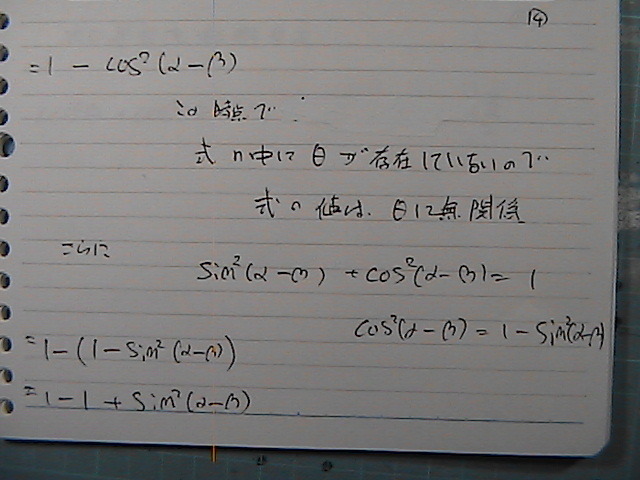 ⑭
= 1 - cos²(α-β)
この時点で
式の中に θ が存在していないので
式の値は、θに無関係
さらに
sin²(α-β) + cos²(α-β) = 1
cos²(α-β) = 1 - sin²(α-β)
= 1 - (1 - sin²(α-β))
= 1 - 1 + sin²(α-β)